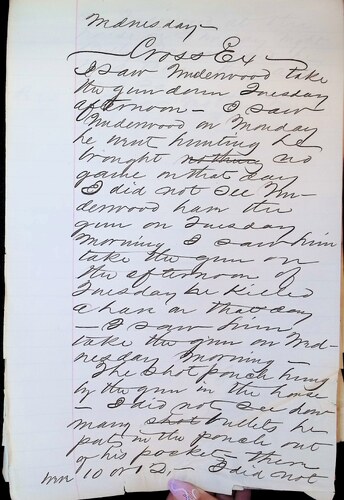 Wednesday —
Cross Ex —
I saw Underwood take
the gun down Tuesday
afternoon — I saw
Underwood on Monday
he went hunting he
brought nothing no
game on that day
I did not see Un-
derwood have the
gun on Tuesday
morning I saw him
take the gun on
the afternoon of
Tuesday he killed
a hare on that day
— I saw him
take the gun on Wed-
nesday morning —
The shot pouch hung
by the gun in the house
— I did not see how
many shot bullets he
puts in the pouch out
of his pocket — there
10 or 12, — I did not